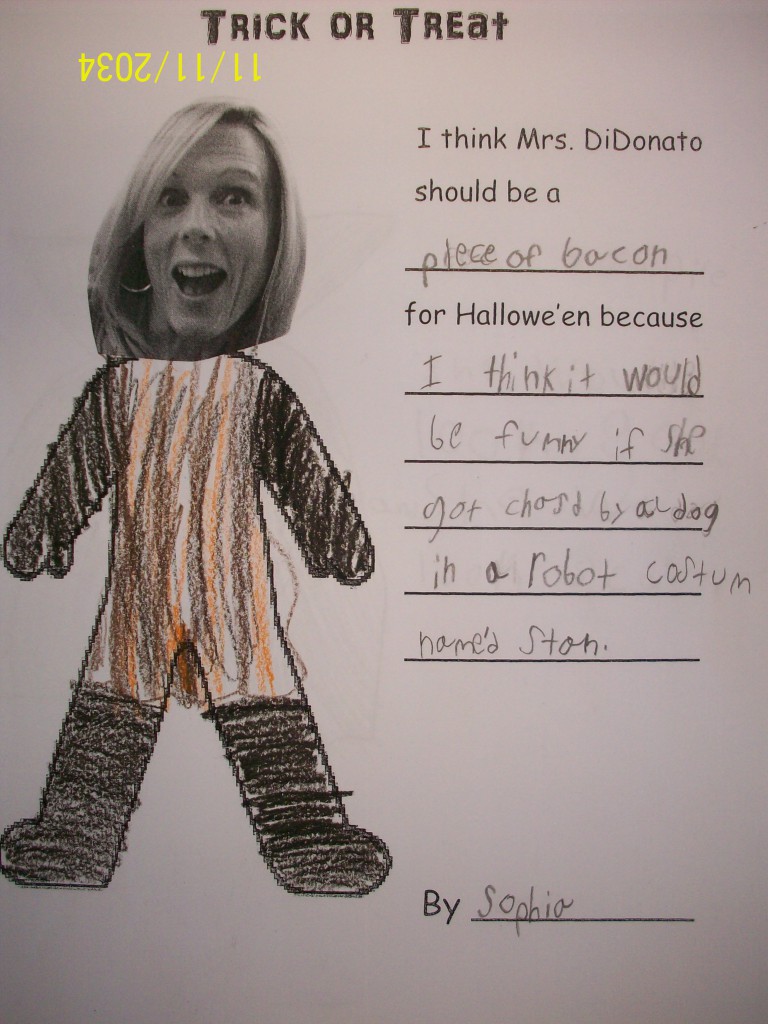 TRICK OR TREAT
11/11/2034
I think Mrs. DiDonato
should be a
piece of bacon
for Hallowe'en because
I think it would
be funny if she
got chasd by a dog
in a robot costum
name'd Stan.
By Sophia